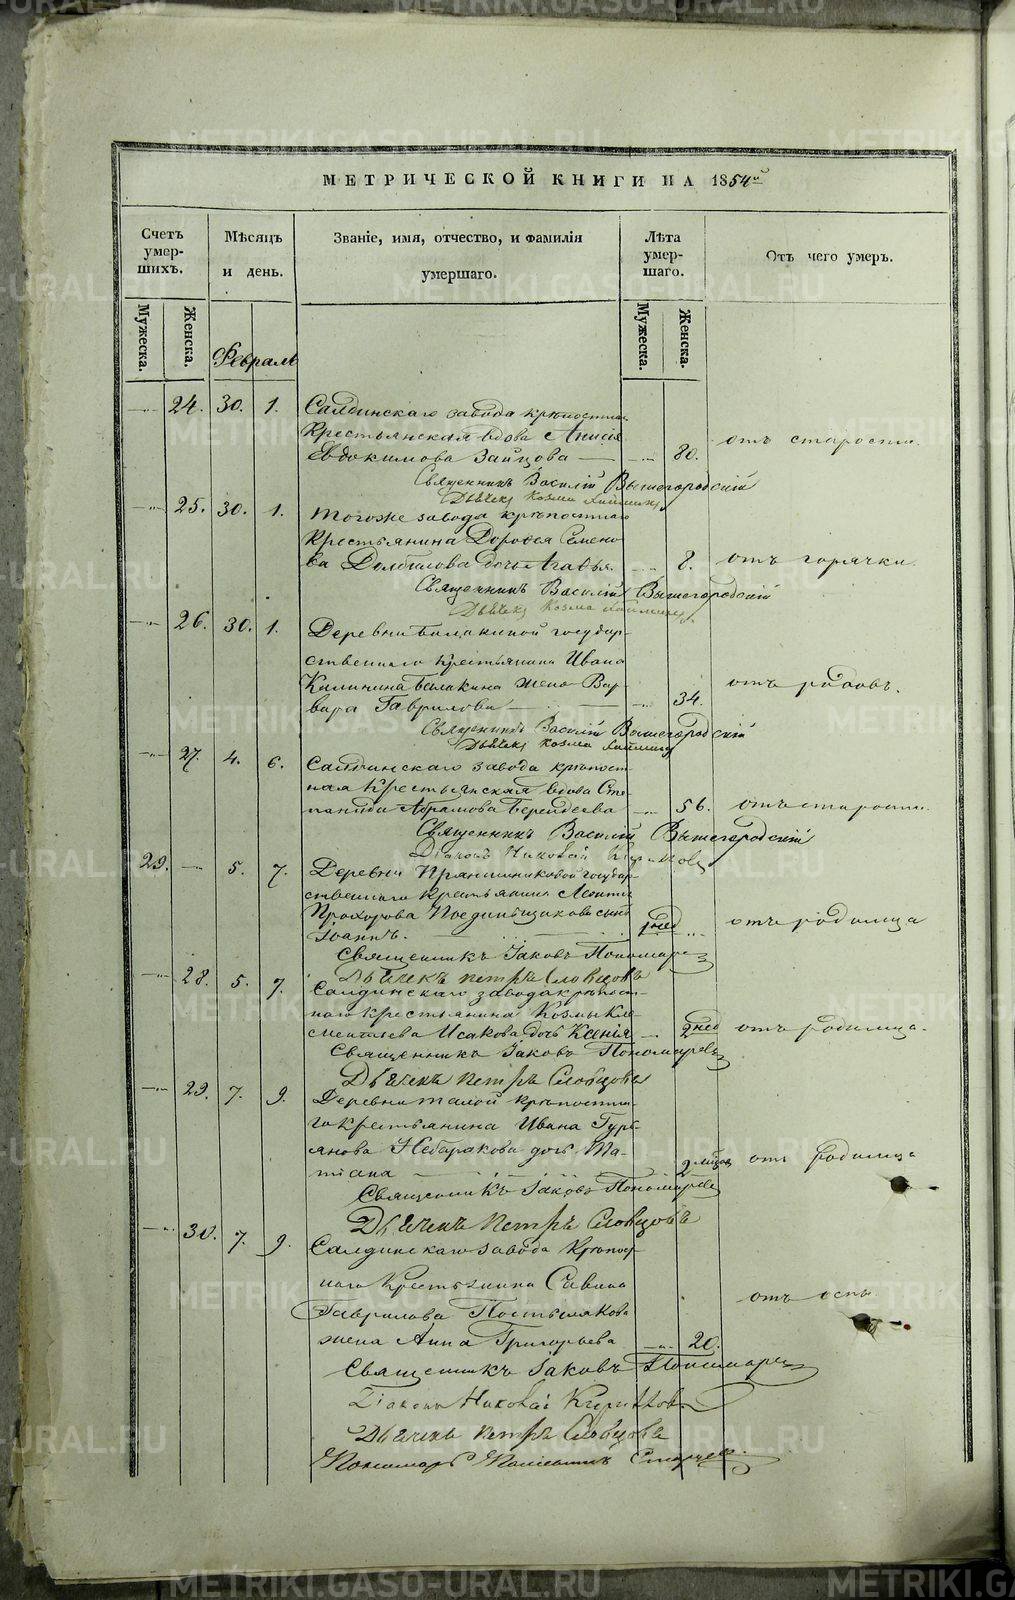 METRIKI.GASO-URAL.RU
МЕТРИЧЕСКОЙ КНИГИ НА 1854й
Счетъ умер- шихъ.
Мѣсяцъ и день.
Званіе, имя, отчество, и фамилія умершаго.
Лѣта умер- шаго.
Отъ чего умеръ.
Мужеска.
Женска.
Мужеска.
Женска.
Февраль
24. 30. 1. Салдинскаго завода крѣпостная
Крестьянская вдова Анисія
Евдокимова Зайцова 80. отъ старости.
Священникъ Василій Вышегородскій
Дьячекъ Козма
25. 30. 1. Тогоже завода крѣпостнаго
Крестьянина Дорофея Семено
ва Долбилова дочь Агафья 8. отъ горячки
Священникъ Василій Вышегородскій
Дьячекъ Козма
26. 30. 1. Деревни Балакиной государ-
ственнаго крестьянина Ивана
Калинина Балакина жена Вар-
вара Гаврилова 34. отъ родовъ.
Священникъ Василій Вышегородскій
Дьячекъ Козма
27. 4. 6. Салдинскаго завода крѣпост-
ная Крестьянская вдова Сте-
панида Абрамова Берсенева 56. отъ старости.
Священникъ Василій Вышегородскій
Діаконъ Николай
29. 5. 7. Деревни Прянишниковой государ-
ственнаго Крестьянина Леонтія
Прохорова сынъ
Іоаннъ. дней отъ родимца
Священникъ Іаковъ Пономаревъ
Дьячекъ Петръ Словцовъ
28. 5. 7. Салдинскаго завода крѣпост-
наго крестьянина Козмы Кле
ментьева Исакова дочь Ксенія 2 дней отъ родимца.
Священникъ Іаковъ Пономаревъ
Дьячекъ Петръ Словцовъ
29. 7. 9. Деревни Талой крѣпостна-
го крестьянина Ивана Гурь-
янова дочь Та-
тіана 2 мѣсяц отъ родимца
Священникъ Іаковъ Пономаревъ
Дьячекъ Петръ Словцовъ
30. 7. 9. Салдинскаго завода Крѣпост-
наго Крестьянина Савина
Гаврилова Постылякова
жена Анна Григорьева 20. отъ оспы.
Священникъ Іаковъ Пономаревъ
Діаконъ Николай
Дьячекъ Петръ Словцовъ
Пономарь